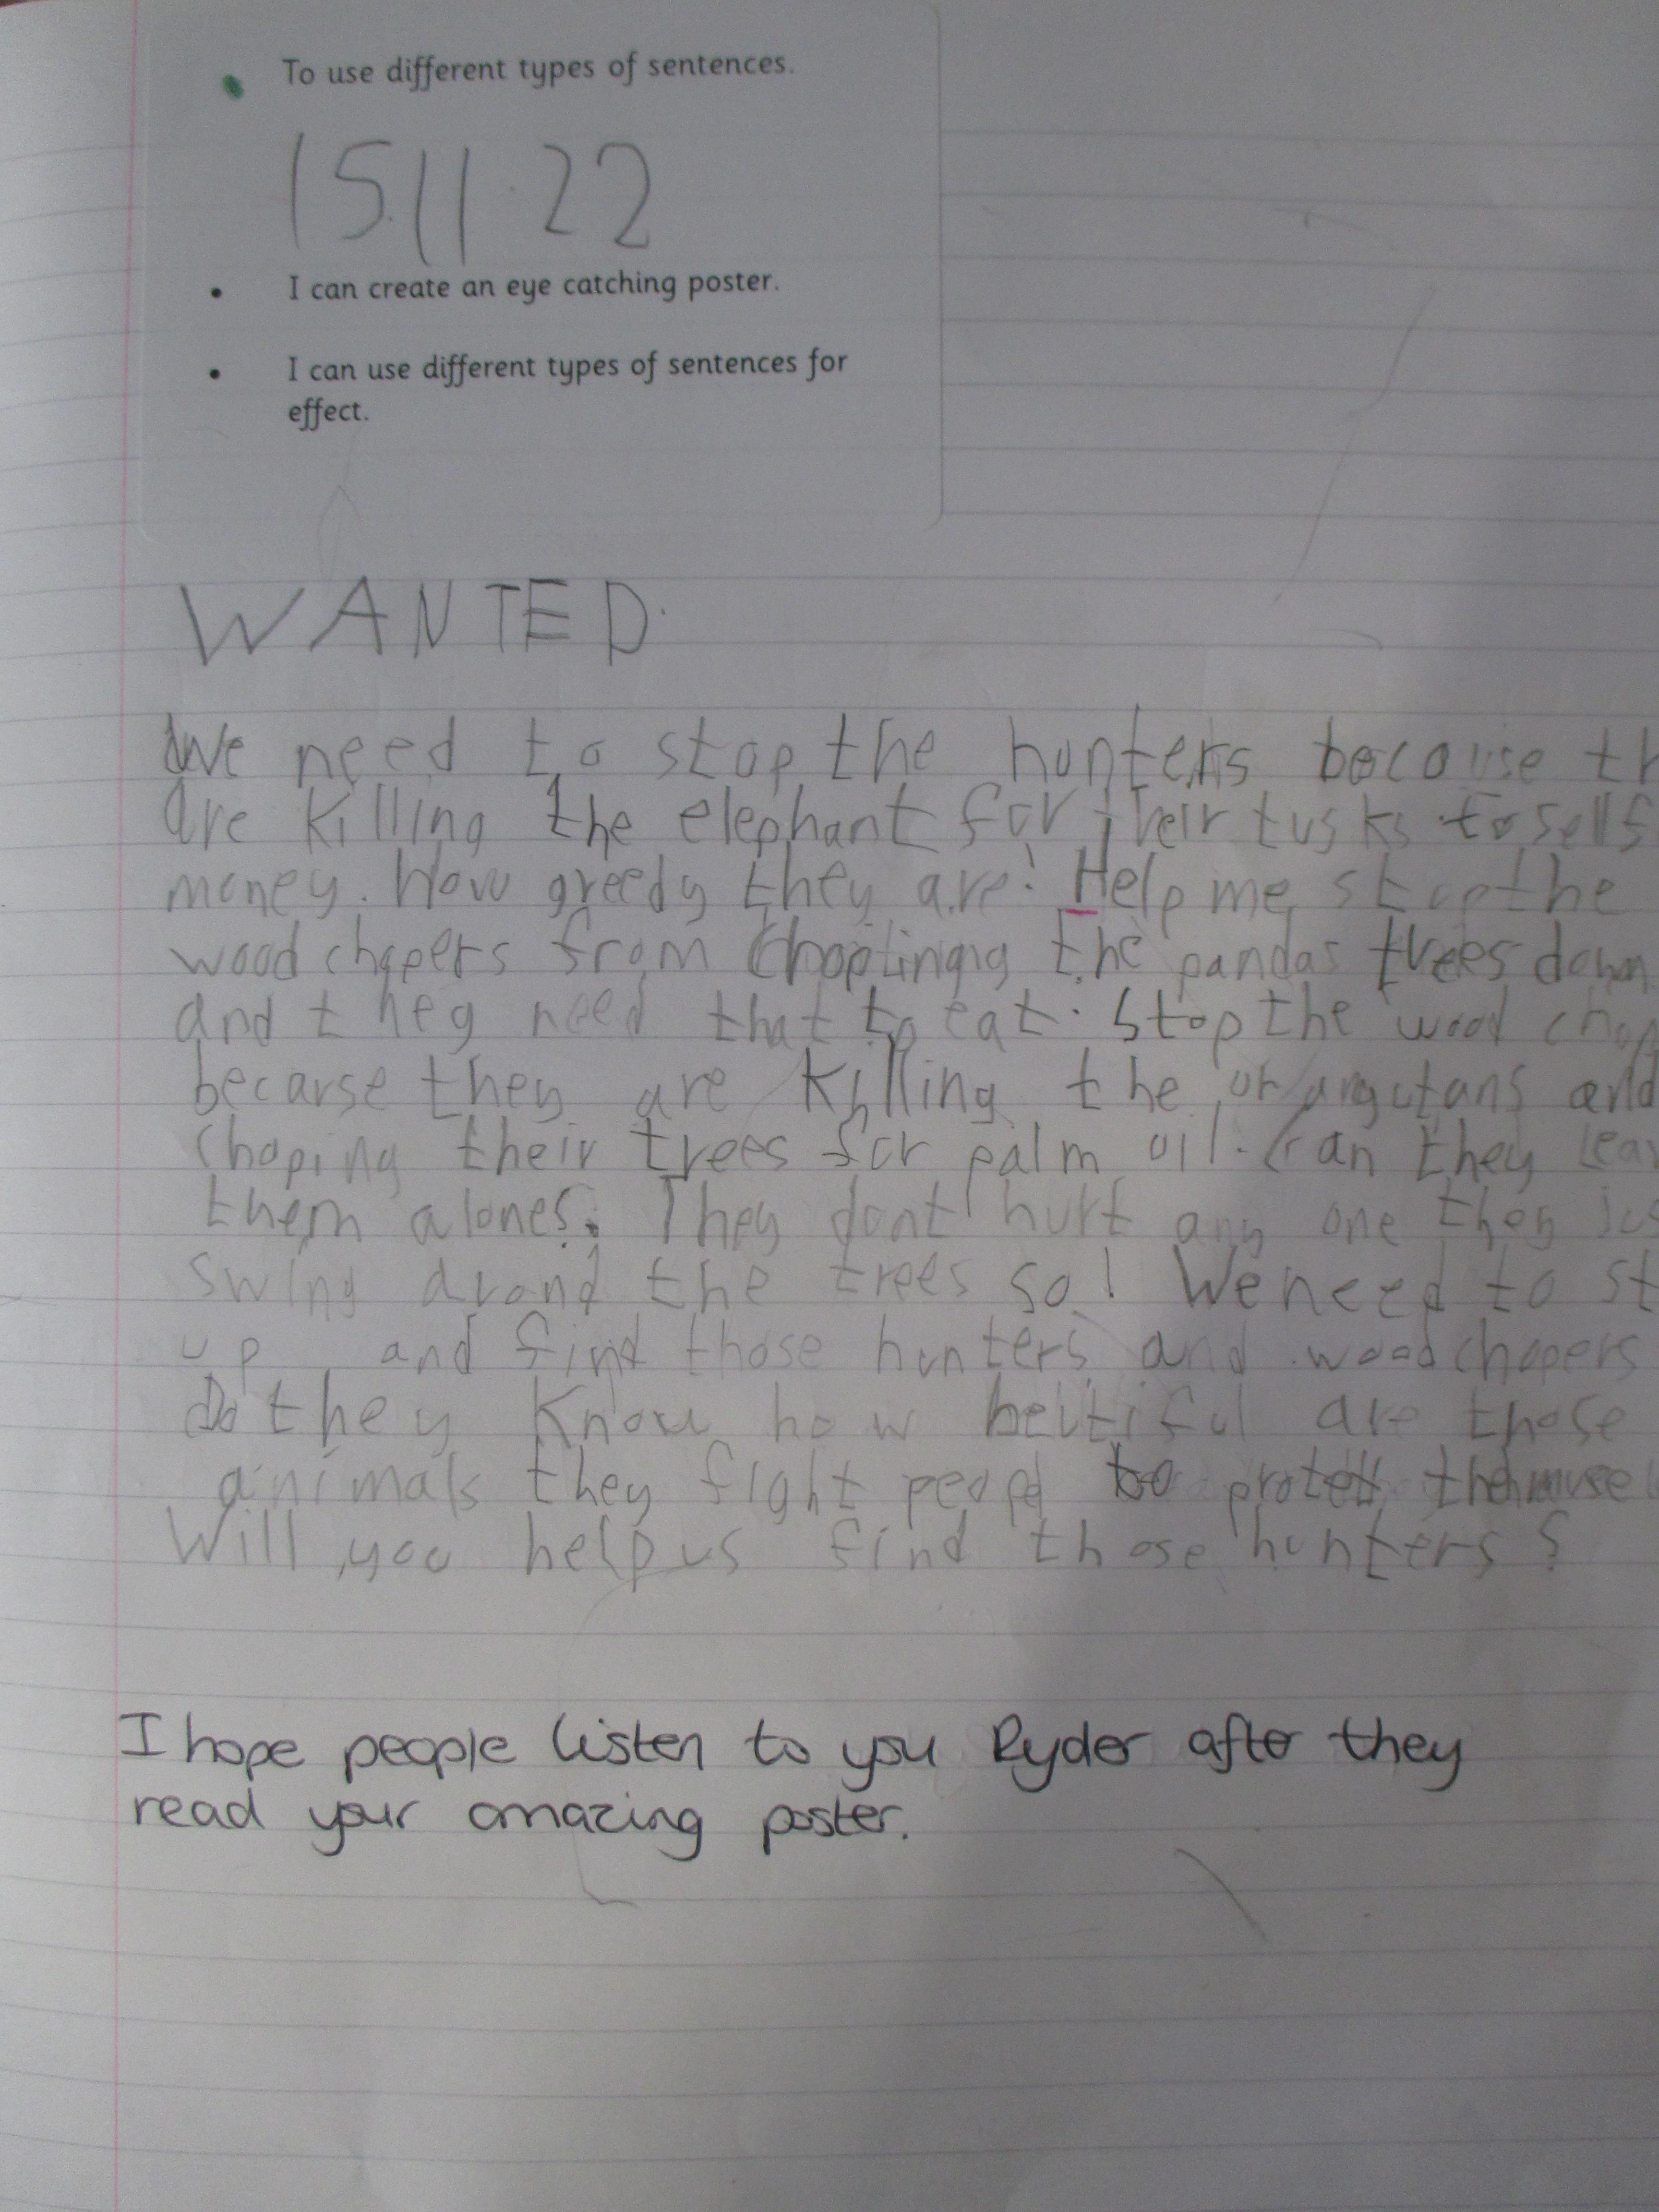 To use different types of sentences.
15.11.22
I can create an eye catching poster.
I can use different types of sentences for
effect.
WANTED.
We need to stop the hunters because
are killing the elephant for their tusks to sell
money. How greedy they are! Help me stop the
wood chapers from the pandas trees down
and they need that to eat. Stop the wood
becarse they are killing the orangutans and
choping their trees for palm oil. Can they
them alones. They dont hurt any one they
swing arond the trees so! We need to
up and find those hunters and wood chopers
Do they know how beutiful are those
animals they fight peopel to
Will you help us find those hunters?
I hope people listen to you Ryder after they
read your amazing poster.